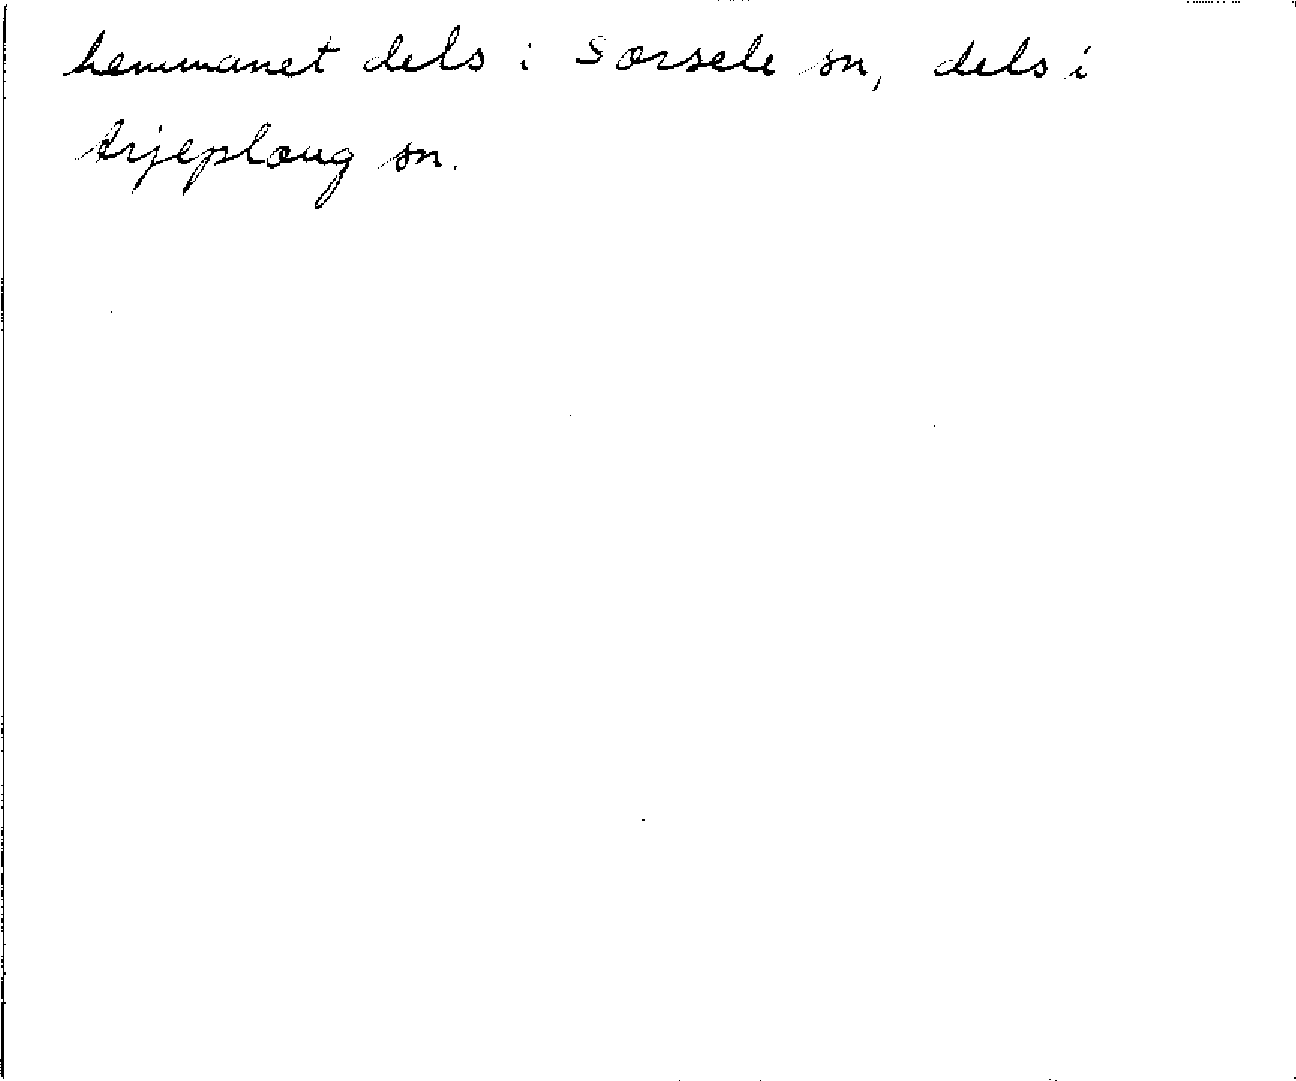 hemmanet dels i Sorsele sn, dels i
Arjeploug sn.